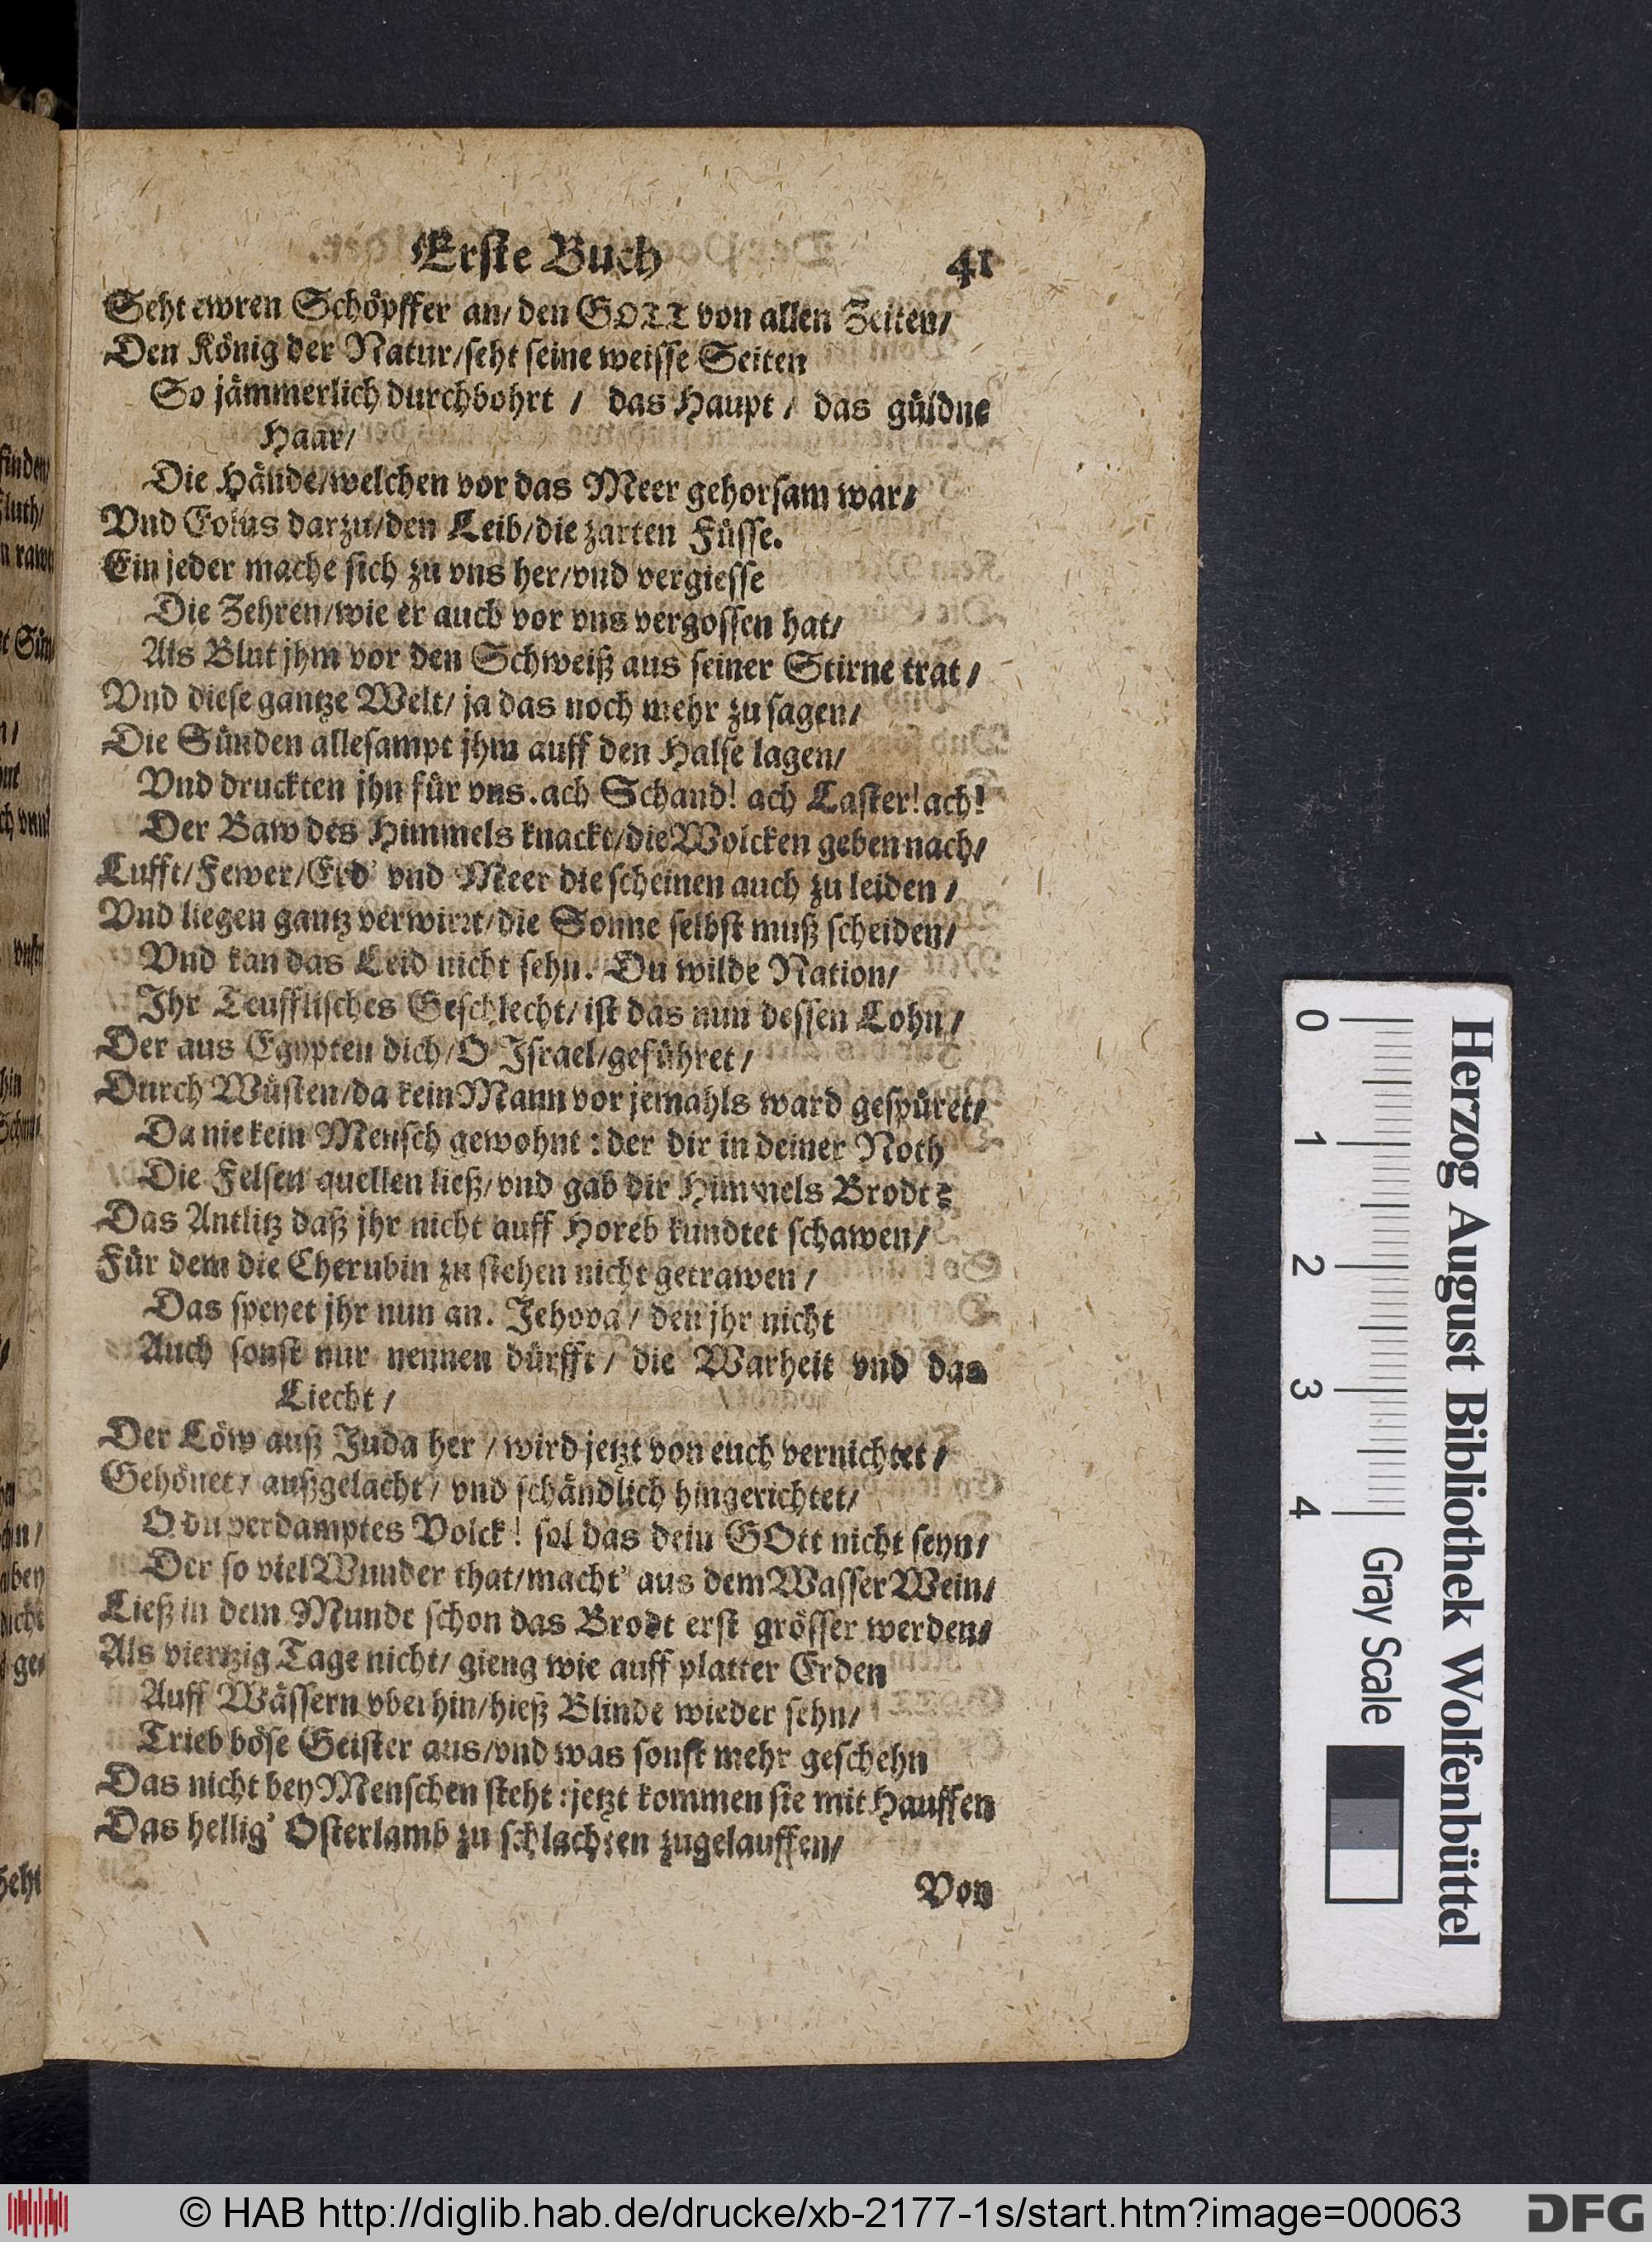 Erste Buch 41
Seht ewren Schöpffer an/ den GOTT von allen Zeiten/
Den König der Natur/seht seine weisse Seiten
So jämmerlich durchbohrt / das Haupt / das güldne
Haar/
Die Hände/welchen vor das Meer gehorsam war/
Vnd Eolus darzu/den Leib/die zarten Füsse.
Ein jeder mache sich zu vns her/vnd vergiesse
Die Zehren/wie er auch vor vns vergossen hat/
Als Blut jhm vor den Schweiß aus seiner Stirne trat /
Vnd diese gantze Welt/ ja das noch mehr zu sagen/
Die Sünden allesampt jhm auff den Halse lagen/
Vnd druckten jhn für vns. ach Schand! ach Laster! ach!
Der Baw des Himmels knackt/die Wolcken geben nach/
Lufft/Fewer/Erd' vnd Meer die scheinen auch zu leiden /
Vnd liegen gantz verwirrt/die Sonne selbst muß scheiden/
Vnd kan das Leid nicht sehn. Du wilde Nation/
Ihr Teufflisches Geschlecht/ ist das nun dessen Lohn /
Der aus Egypten dich/O Israel/geführet /
Durch Wüsten/da kein Mann vor jemahls ward gespüret/
Da nie kein Mensch gewohnt : der dir in deiner Noth
Die Felsen quellen ließ/vnd gab dir Himmels Brodt?
Das Antlitz daß jhr nicht auff Horeb kundtet schawen/
Für dem die Cherubin zu stehen nicht getrawen /
Das speyet jhr nun an. Jehova / den jhr nicht
Auch sonst nur nennen dürfft / die Warheit vnd das
Liecht /
Der Löw auß Juda her / wird jetzt von euch vernichtet /
Gehönet / außgelacht / vnd schändlich hingerichtet/
O du verdamptes Volck! sol das dein GOtt nicht seyn/
Der so viel Wunder that/macht' aus dem Wasser Wein/
Ließ in dem Munde schon das Brodt erst grösser werden/
Als viertzig Tage nicht/ gieng wie auff platter Erden
Auff Wässern vber hin/hieß Blinde wieder sehn/
Trieb böse Geister aus/vnd was sonst mehr geschehn
Das nicht bey Menschen steht : jetzt kommen sie mit Hauffen
Das heilig' Osterlamb zu schlachten zugelauffen/
Von
0 1 2 3 4
Gray Scale
Herzog August Bibliothek Wolfenbüttel
© HAB http://diglib.hab.de/drucke/xb-2177-1s/start.htm?image=00063
DFG